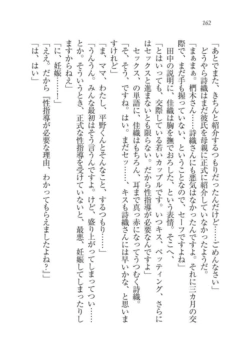 162
「あとでまた、きちんと紹介するつもりだったんだけど……ごめんなさい」
どうやら詩織はまだ彼氏を母親に正式に紹介していなかったようだ。
「まぁまぁ。椚木さん……詩織さんにも悪気はなかったと思いますよ。まだ三カ月の交
際で、まだ手も握っていないということなので、セーフですよ」
田中の説明に、佳織は胸を撫でおろした、という表情。そこへ、
「とはいっても、交際している若いカップルです。いつキス、ペッティング、さらに
はセックスへと進まないとも限らない。だから性指導が必要なのです」
セックス、の単語に、佳織も、耳まで真っ赤にしてうつむく詩織。
「ま、まだ、セッ……。キスも詩織さんには早いかな、と思いま
すけれど」
「え、ママ、わたし、平野くんと、そんなことをするつもり……」
「うんうん。みんな最初はそう言うんですよ。けど、盛り上がってしまってつい……
とか。そういうとき、正式な性指導を受けていないと、最悪、妊娠してしまったりし
ますからねえ」
「に、妊娠……」
「ええ。だから『性指導が必要な理由、わかってもらえましたよね？」
「は、はい」